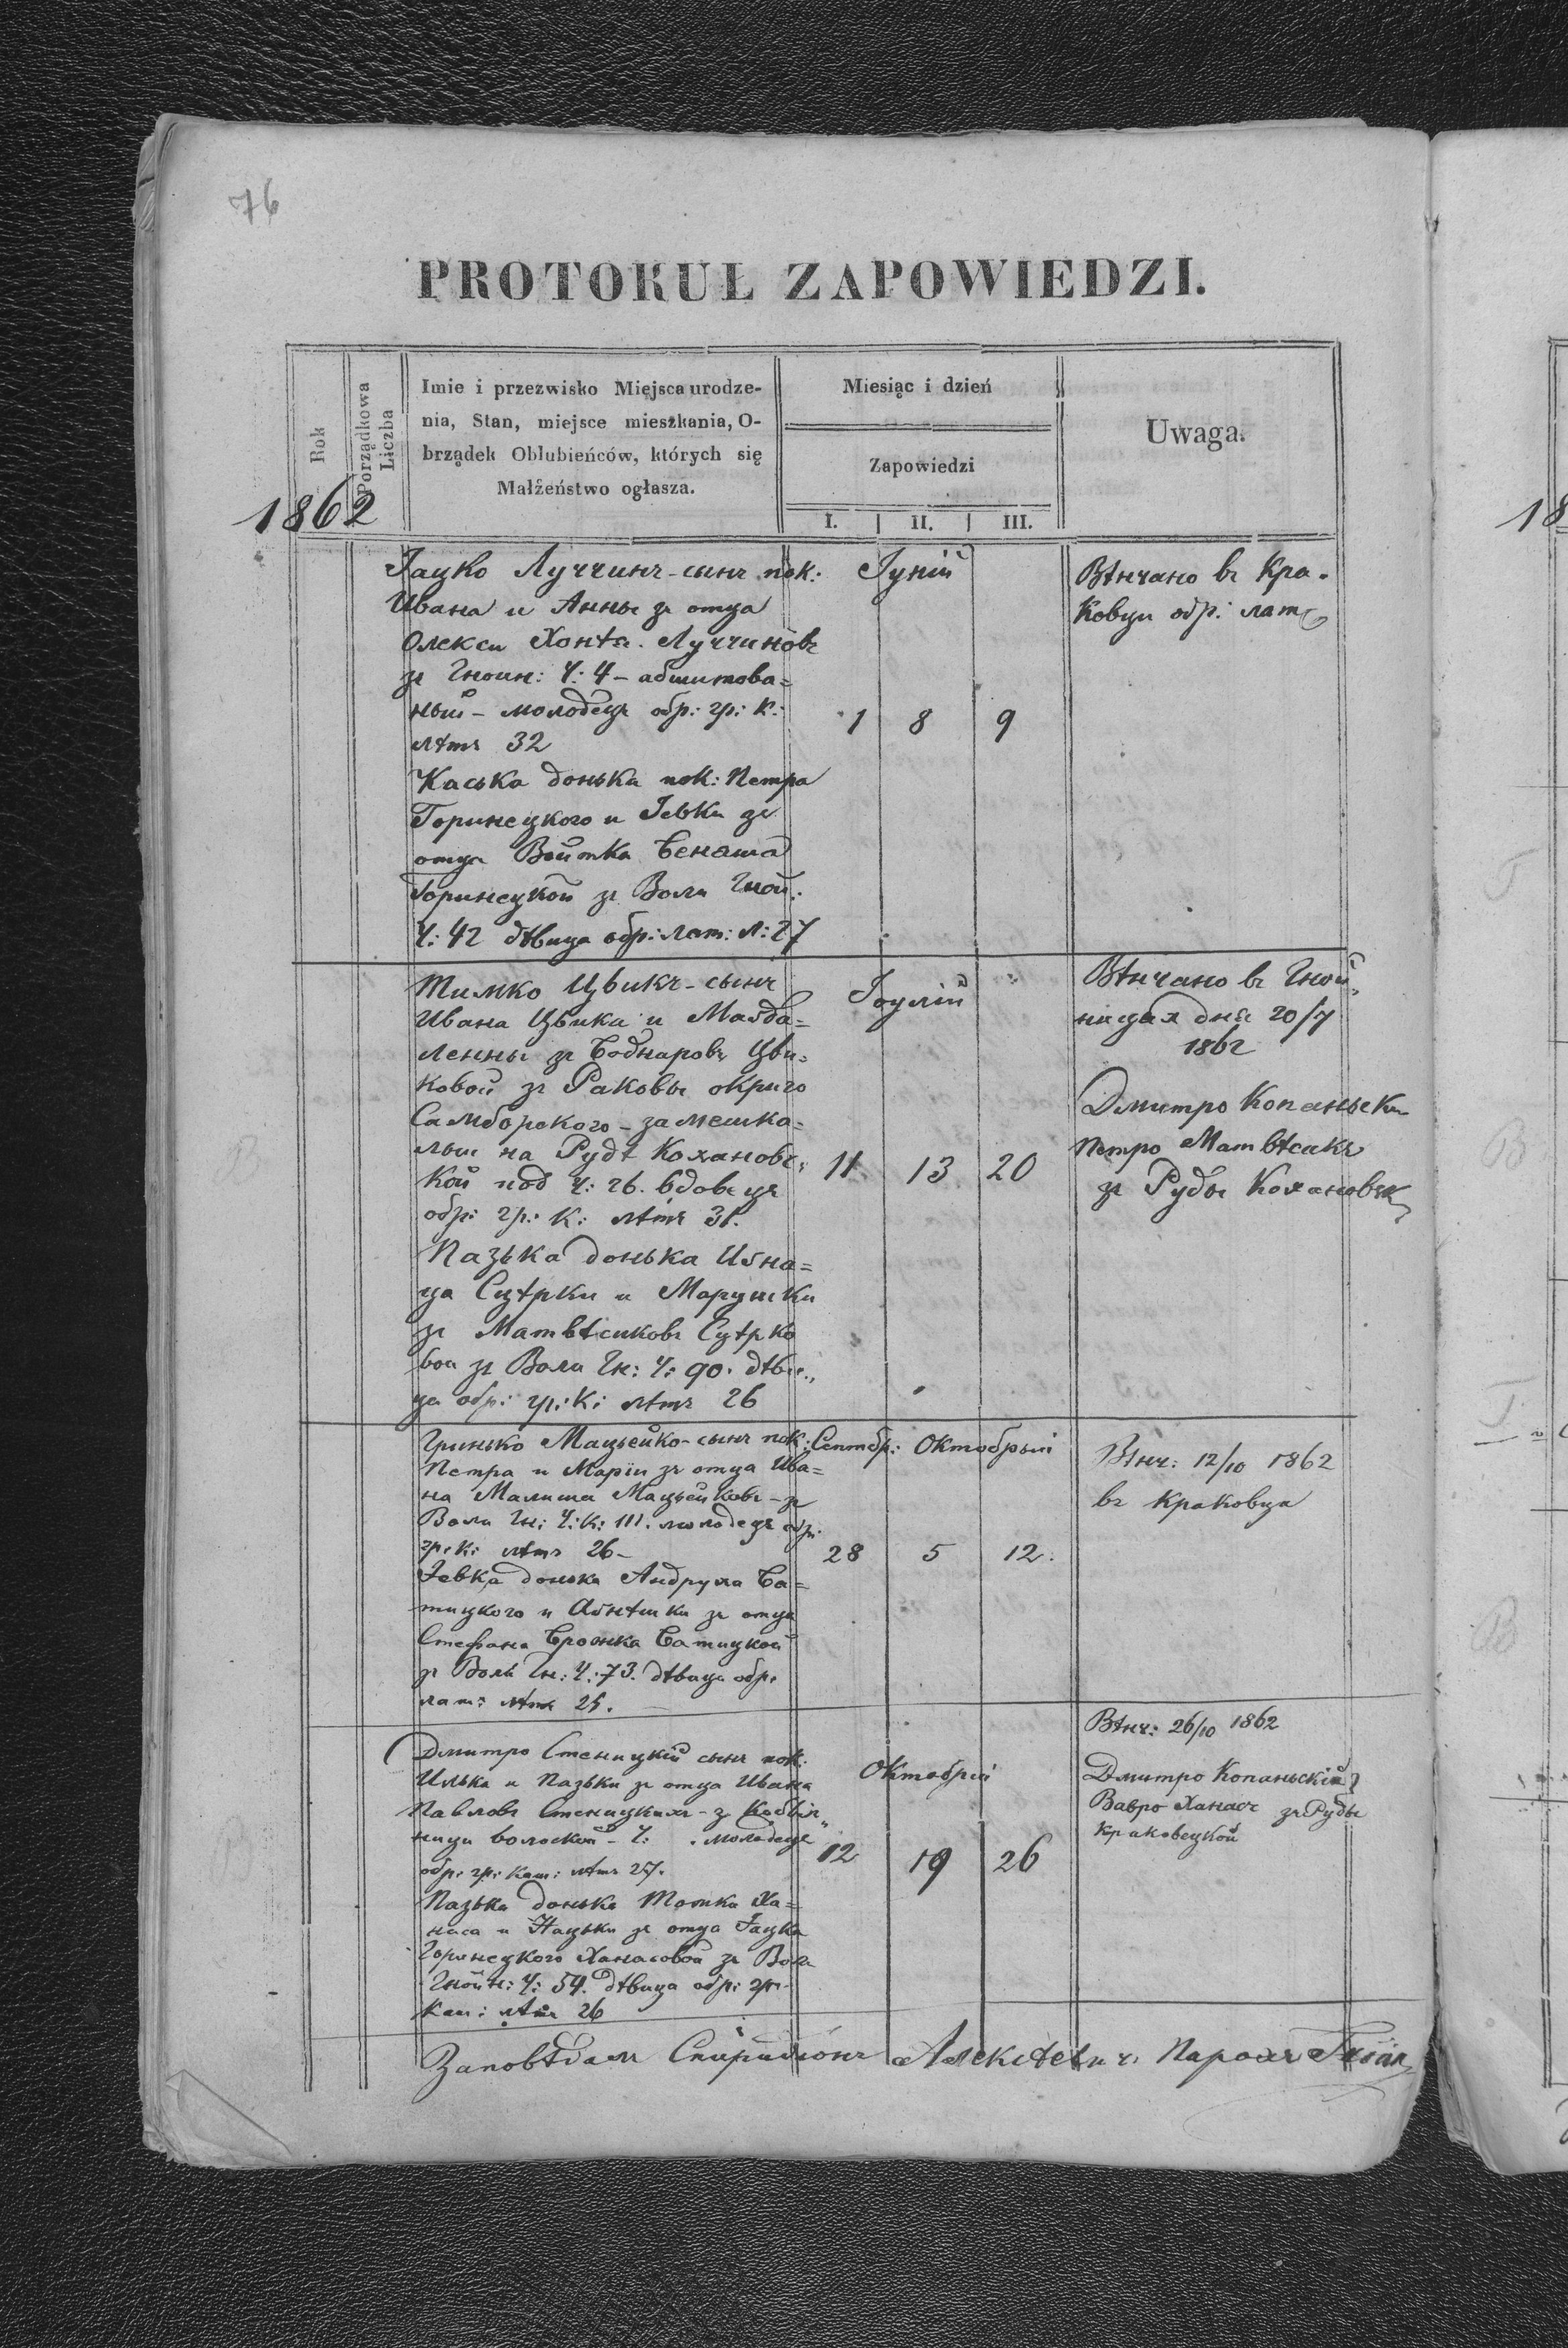 76
PROTOKUŁ ZAPOWIEDZI.
Rok
Porządkowa
Liczba
Imie i przezwisko Miejsca urodze-
nia, Stan, miejsce mieszkania, O-
brządek Oblubieńców, których się
Małżeństwo ogłasza.
Miesiąc i dzień
Zapowiedzi
I. II. III.
Uwaga.
1862
Яцко Луччинъ - сынъ пок:
Ивана и Анны зъ отца
Олекси Хонтѧ Луччиновъ
зъ Гноин: Ч: 4 - абшитова=
ный - молодецъ обр: гр: к:
лѣтъ 32
Каська донька пок: Петра
Горинецкого и Іевки зъ
отца Войтка Бенаша
Горинецкой зъ Воли Гной:
Ч: 42 дѣвица обр: лат: л: 27
Іуній
1 8 9
Вѣнчано въ Кра-
ковци обр: лат
Тимко Цвикъ - сынъ
Ивана Цвика и Маґда=
ленны зъ Боднаровъ Цви=
ковой зъ Раковы окриго
Самборского - замешка=
лый на Рудѣ Кохановс
кой под Ч: 26. вдовецъ
обр: гр: К: лѣтъ 31.
Пазька донька Иґна=
ца Сцѣрки и Марушки
зъ Матвѣсиковъ Сцѣрко
вой зъ Воли Гн: Ч: 90. дѣви„
ца обр: гр: К: лѣтъ 26
Іоулій
11 13 20
Вѣнчано въ Гной„
ницах дня 20/7
1862
Дмитро Копаньски
Петро Матвѣсикъ
зъ Руды Кохановск
Гринько Мацѣйко - сынъ пок:
Петра и Маріи зъ отца Ива=
на Малиша Мацѣйковъ - зъ
Воли Гн: Ч: К: 111. молодецъ обр:
гр: К: лѣтъ 26 -
Іевка донька Андруха Ба=
тицкого и Аґнѣшки зъ отца
Стефана Бронка Батицкой
зъ Воли Гн: Ч: 73. дѣвица обр:
лат: лѣтъ 25.
Септбр: Октобрый
28 5 12.
Вѣнч: 12/10 1862
въ Краковци
Дмитро Стеницкій сынъ пок:
Илька и Пазьки зъ отца Ивана
Павловъ Стеницкихъ - з Кобыл„
ници волоской - Ч: . молодецъ
обр: гр: кат: лѣтъ 27.
Пазька донька Томка Ха=
наса и Нацьки зъ отца Яцка
Горинецкого Ханасовой зъ Воли
Гнойн: Ч: 54. дѣвица обр: гр:
кат: лѣтъ 26
Октобрій
12 19 26
Вѣнч: 26/10 1862
Дмитро Копаньскій
Вавро Ханасъ зъ Руды
Краковецкой
Заповѣдалъ Спиридіонъ Алексѣевич Парохъ